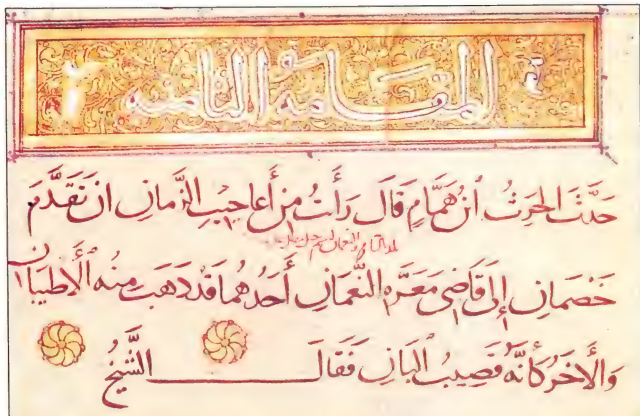 المقامه الثامنه
حَدَّثَ الحرِثُ ابْنُ هَمَّامٍ قَالَ رَأَيتُ مِنْ أَعاجيبِ الزَّمانِ انْ تَقَدَّمَ
خَصْمَانِ إِلَى قَاضِى مَعَرَّه النُّعْمَانِ أَحَدُهُمَا قَدْ ذَهَبَ مِنْهُ الأَطْيَبَانِ
وَالأَخَرُ كَأَنَّهُ قَضِيبُ البَانِ فَقَالَ الشَّيْخُ